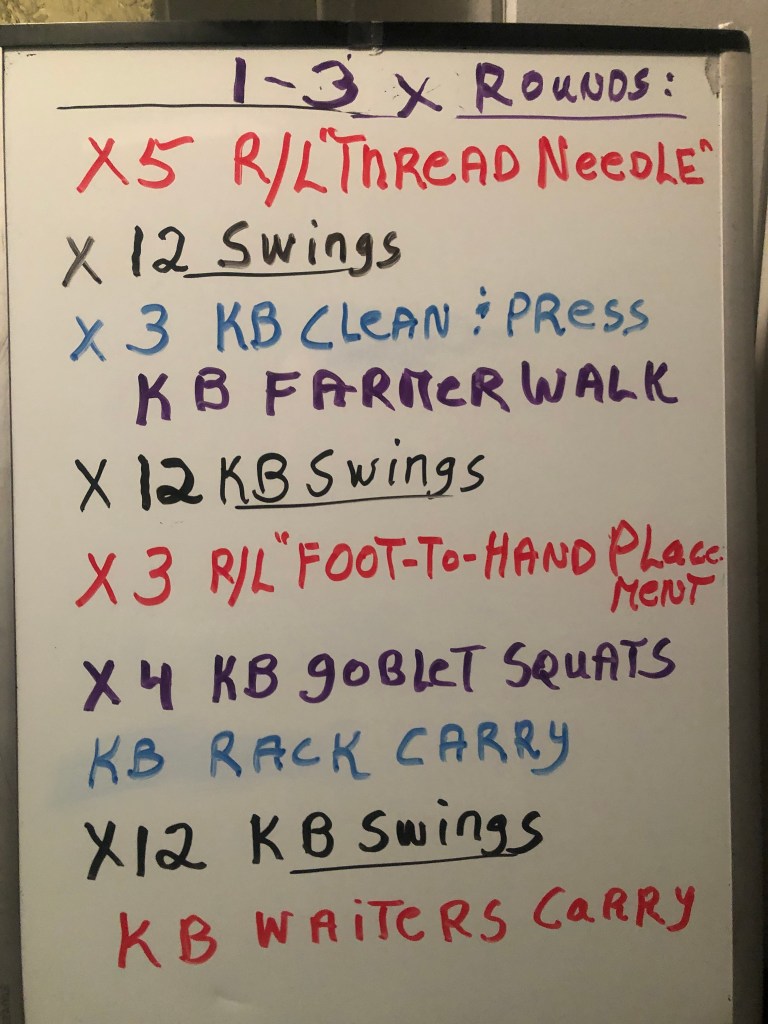 1-3 X ROUNDS:
X5 R/L "THREAD NEEDLE"
X 12 Swings
X 3 KB CLEAN & PRESS
KB FARMER WALK
X 12 KB Swings
X 3 R/L "FOOT-TO-HAND PLACE-
MENT
X4 KB GOBLET SQUATS
KB RACK CARRY
X12 KB Swings
KB WAITERS CARRY